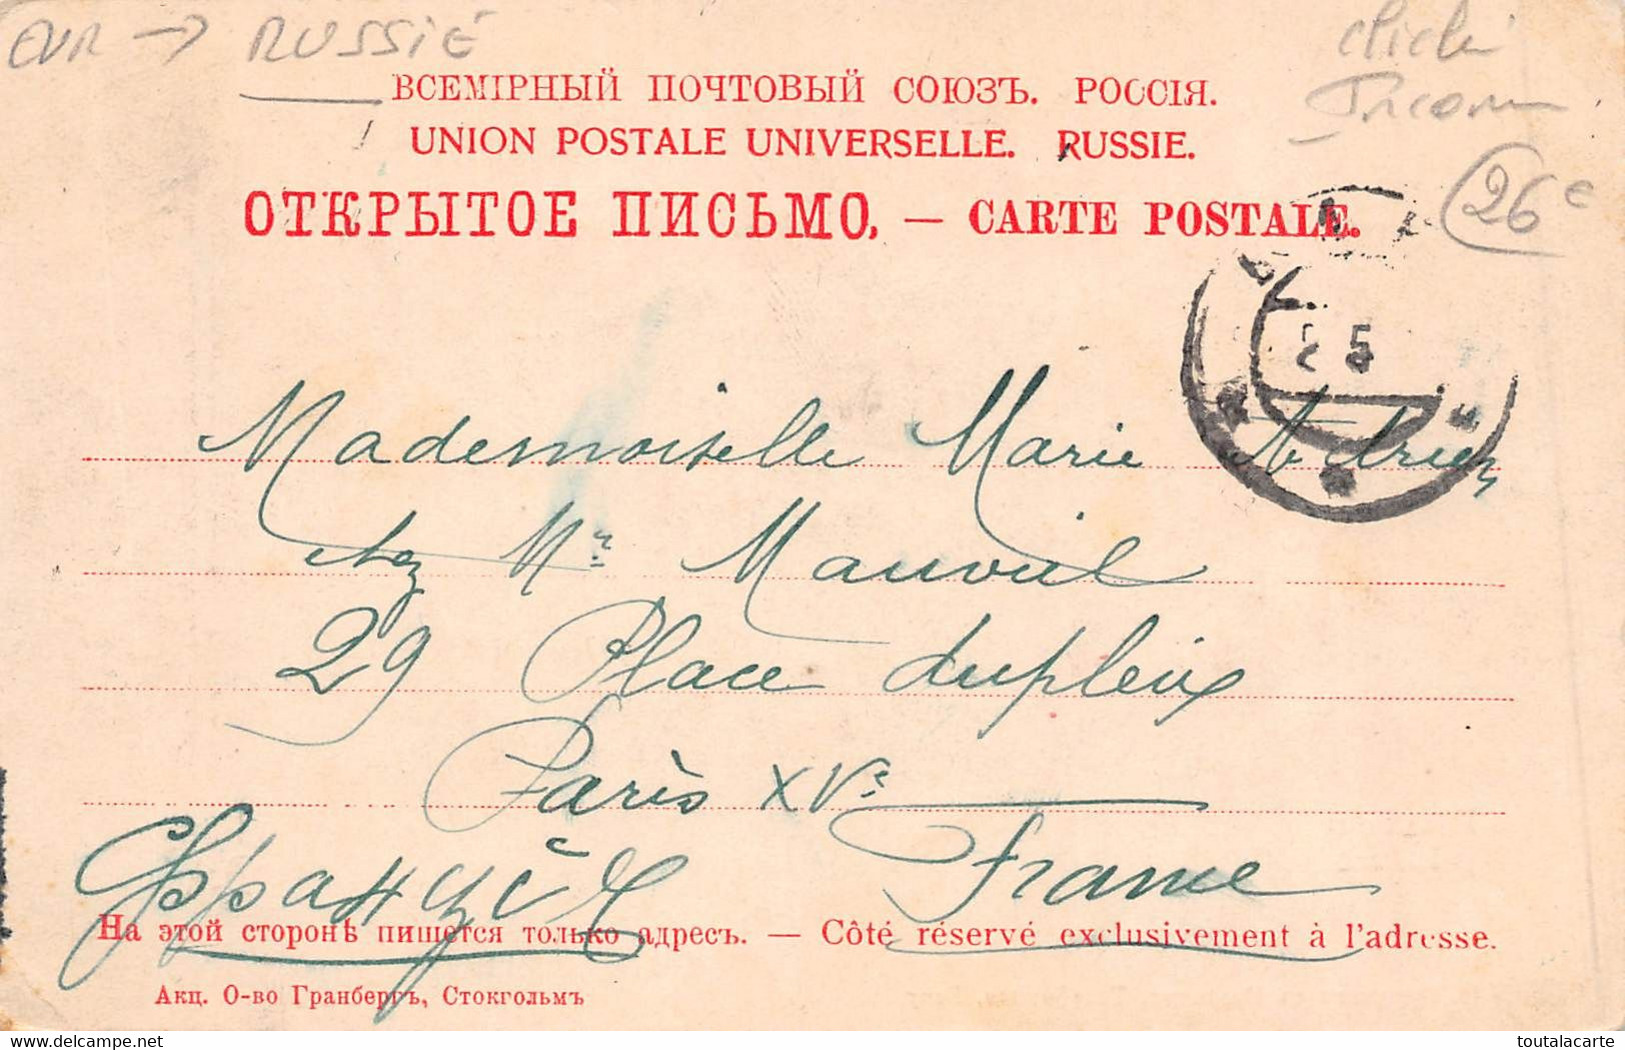 EUR → RUSSIE
cliché
26€
ВСЕМІРНЫЙ ПОЧТОВЫЙ СОЮЗЪ. РОССІЯ.
UNION POSTALE UNIVERSELLE. RUSSIE.
ОТКРЫТОЕ ПИСЬМО. — CARTE POSTALE.
Mademoiselle Marie Adrien
chez Mr Mauvil
29 Place Dupleix
Paris XVe
France
Франція
На этой сторонѣ пишется только адресъ. — Côté réservé exclusivement à l'adresse.
Акц. О-во Гранбергъ, Стокгольмъ
www.delcampe.net
toutalacarte